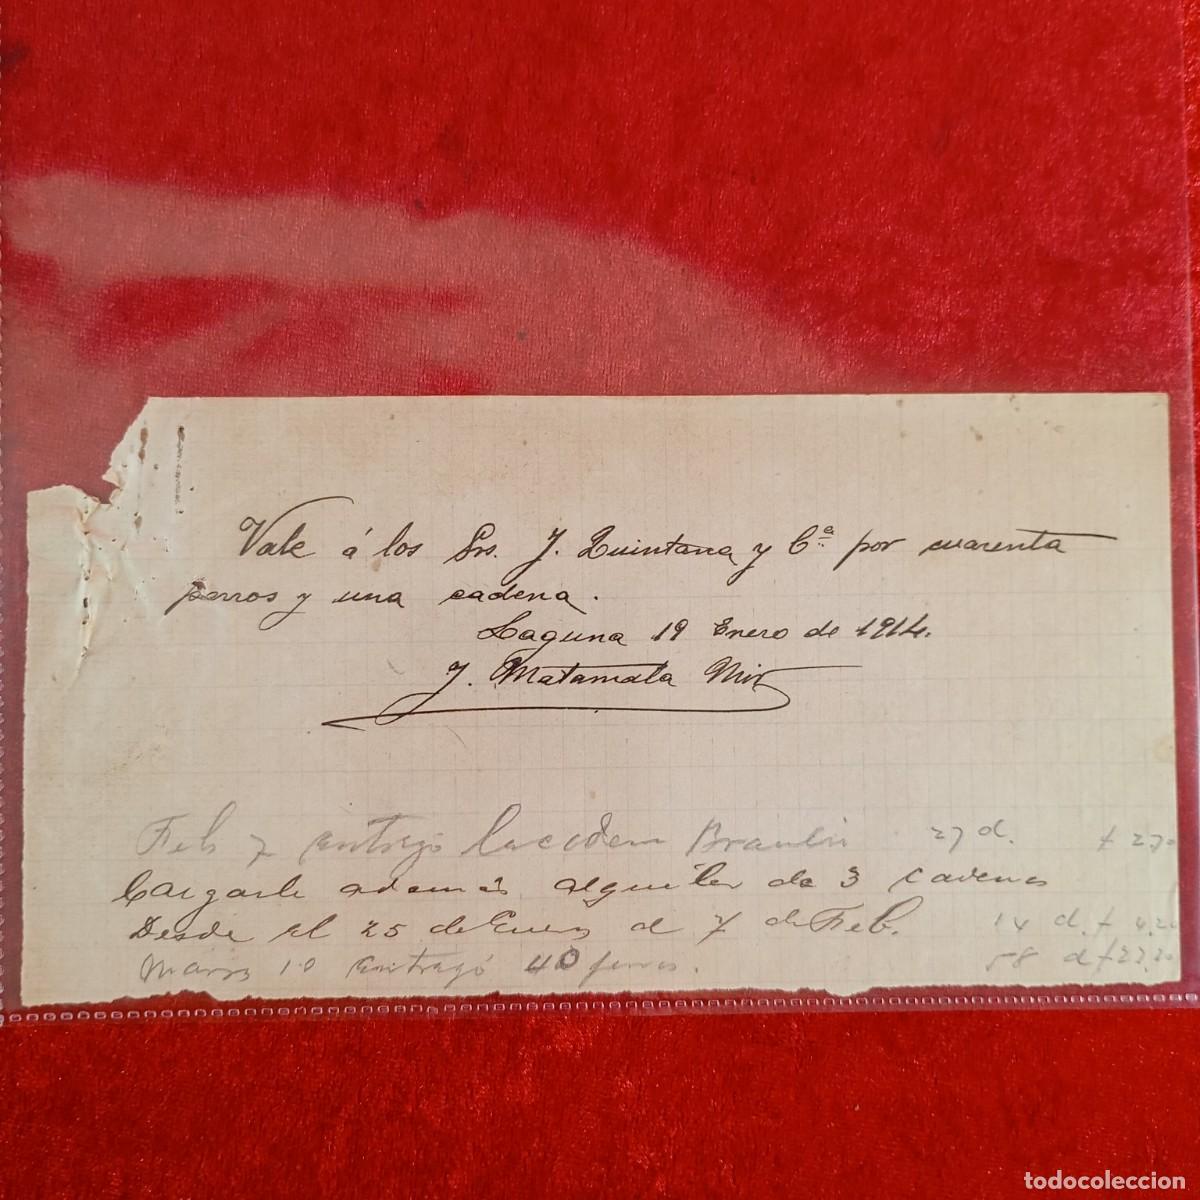 Vale á los Srs. J. Quintana y Cª por cuarenta
perros y una cadena.
Laguna 19 Enero de 1914.
J. Matamala Mir
Feb 7 entregó la cadena Braulio 27 d. £ 2,70
Cargarle además alquiler de 3 cadenas
Desde el 25 de Enero al 7 de Feb. 14 d. £ 4.20
Marzo 10 entregó 40 perros. 58 d £ 23.20
todocoleccion